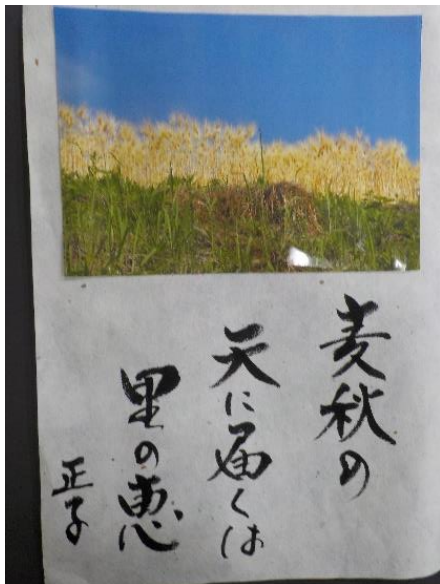 麦秋の
天に届くは
里の恵
正子